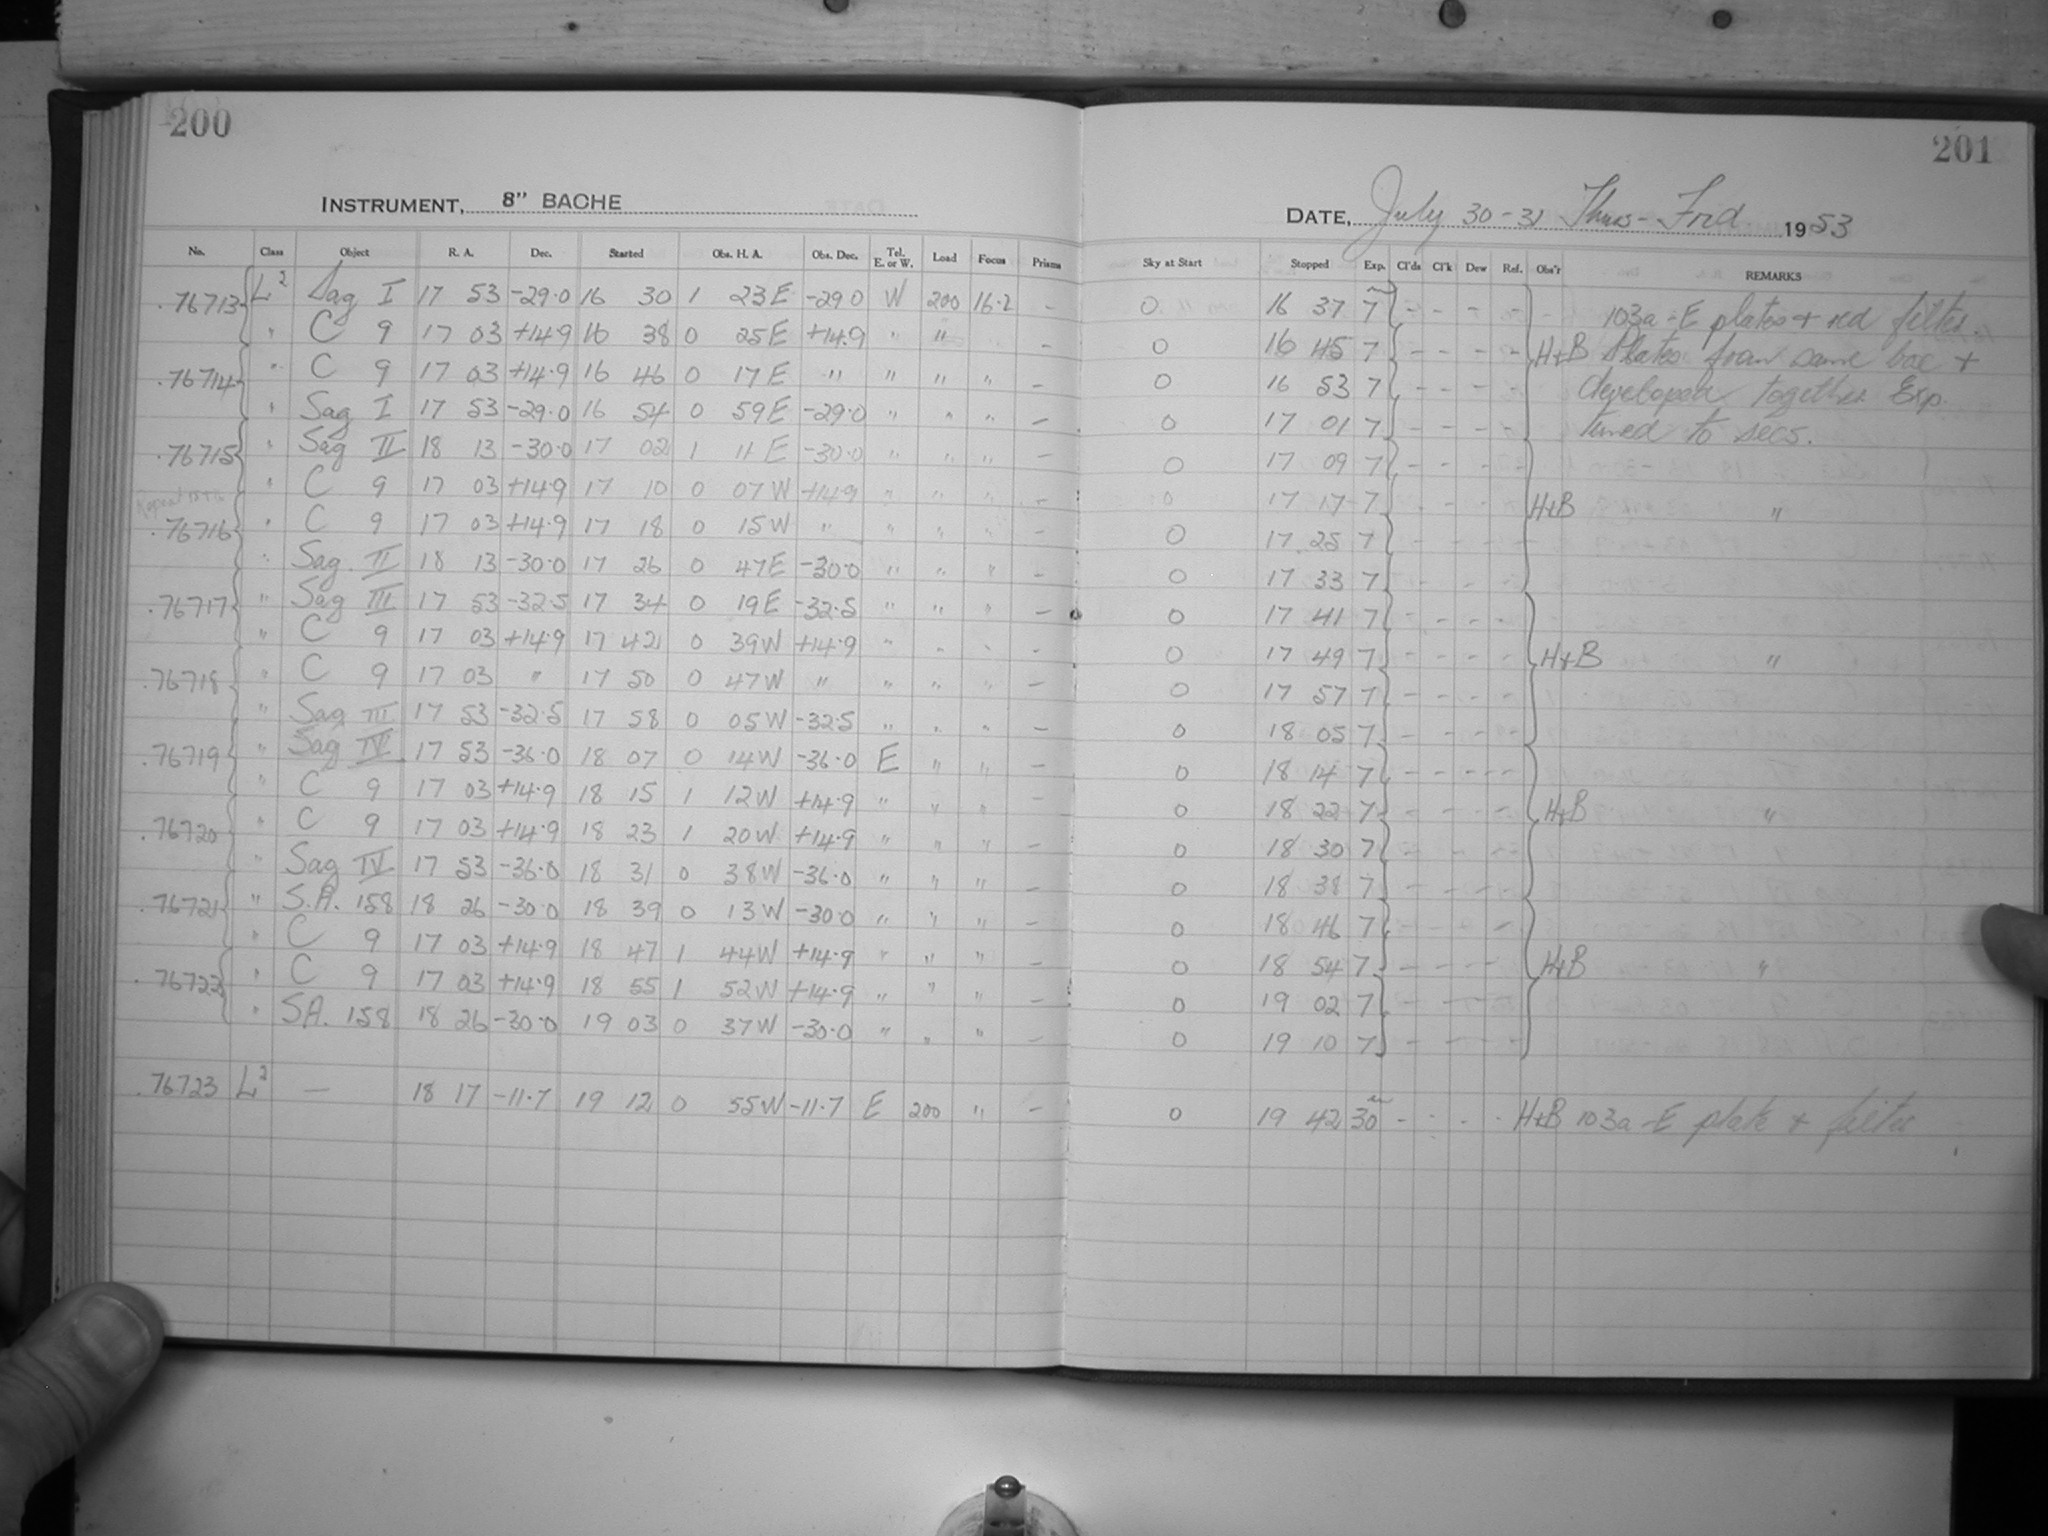 200
201
INSTRUMENT, 8" BACHE
DATE, July 30-31 Thurs-Frid 1953
No. Class Object R. A. Dec. Started Obs. H. A. Obs. Dec. Tel. E. or W. Load Focus Prisms Sky at Start Stopped Exp. Cl'ds Cl'k Dew Ref. Obs'r REMARKS
76713 L² Sag I 17 53 -29.0 16 30 1 23E -29.0 W 200 16.2 - 0 16 37 7ᵐ - - - - 103a-E plates + red filter.
" C 9 17 03 +14.9 16 38 0 25E +14.9 " " - 0 16 45 7 - - - - H+B Plates from same box +
76714 " C 9 17 03 +14.9 16 46 0 17E " " " " - 0 16 53 7 - - - - developed together Exp.
" Sag I 17 53 -29.0 16 54 0 59E -29.0 " " " - 0 17 01 7 - - - - timed to secs.
76715 " Sag II 18 13 -30.0 17 02 1 11E -30.0 " " " - 0 17 09 7 - - - -
" C 9 17 03 +14.9 17 10 0 07W +14.9 " " " - 0 17 17 7 - - - - H+B "
76716 " C 9 17 03 +14.9 17 18 0 15W " " " " - 0 17 25 7 - - - -
" Sag. II 18 13 -30.0 17 26 0 47E -30.0 " " " - 0 17 33 7 - - - -
76717 " Sag III 17 53 -32.5 17 34 0 19E -32.5 " " " - 0 17 41 7 - - - -
" C 9 17 03 +14.9 17 42 0 39W +14.9 " " " - 0 17 49 7 - - - - H+B "
76718 " C 9 17 03 " 17 50 0 47W " " " " - 0 17 57 7 - - - -
" Sag III 17 53 -32.5 17 58 0 05W -32.5 " " " - 0 18 05 7 - - - -
76719 " Sag IV 17 53 -36.0 18 07 0 14W -36.0 E " " - 0 18 14 7 - - - -
" C 9 17 03 +14.9 18 15 1 12W +14.9 " " " - 0 18 22 7 - - - - H+B "
76720 " C 9 17 03 +14.9 18 23 1 20W +14.9 " " " - 0 18 30 7 - - - -
" Sag IV 17 53 -36.0 18 31 0 38W -36.0 " " " - 0 18 38 7 - - - -
76721 " S.A. 158 18 26 -30.0 18 39 0 13W -30.0 " " " - 0 18 46 7 - - - -
" C 9 17 03 +14.9 18 47 1 44W +14.9 " " " - 0 18 54 7 - - - - H+B "
76722 " C 9 17 03 +14.9 18 55 1 52W +14.9 " " " - 0 19 02 7 - - - -
" SA. 158 18 26 -30.0 19 03 0 37W -30.0 " " " - 0 19 10 7 - - - -
76723 L² - 18 17 -11.7 19 12 0 55W -11.7 E 200 " - 0 19 42 30ᵐ - - - - H+B 103a-E plate + filter